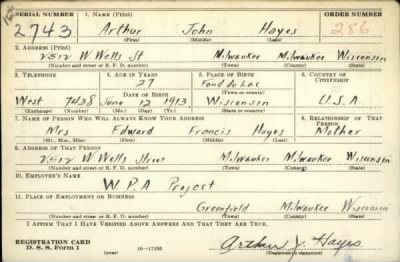 SERIAL NUMBER 1. NAME (Print) ORDER NUMBER
2743 Arthur John Hayes 286
(First) (Middle) (Last)
2. ADDRESS (Print)
2512 W Wells St Milwaukee Milwaukee Wisconsin
(Number and street or R. F. D. number) (Town) (County) (State)
3. TELEPHONE 4. AGE IN YEARS 5. PLACE OF BIRTH 6. COUNTRY OF CITIZENSHIP
27 Fond du Lac
DATE OF BIRTH (Town or county)
West 7438 June 12 1913 Wisconsin U.S.A.
(Exchange) (Number) (Mo.) (Day) (Yr.) (State or country)
7. NAME OF PERSON WHO WILL ALWAYS KNOW YOUR ADDRESS 8. RELATIONSHIP OF THAT PERSON
Mrs Edward Francis Hayes Mother
(Mr., Mrs., Miss) (First) (Middle) (Last)
9. ADDRESS OF THAT PERSON
2512 W Wells Street Milwaukee Milwaukee Wisconsin
(Number and street or R. F. D. number) (Town) (County) (State)
10. EMPLOYER'S NAME
W.P.A Project
11. PLACE OF EMPLOYMENT OR BUSINESS
Greenfield Milwaukee Wisconsin
(Number and street or R. F. D. number) (Town) (County) (State)
I AFFIRM THAT I HAVE VERIFIED ABOVE ANSWERS AND THAT THEY ARE TRUE.
REGISTRATION CARD
D. S. S. Form 1 (over) 16—17105 Arthur J. Hayes
(Registrant's signature)